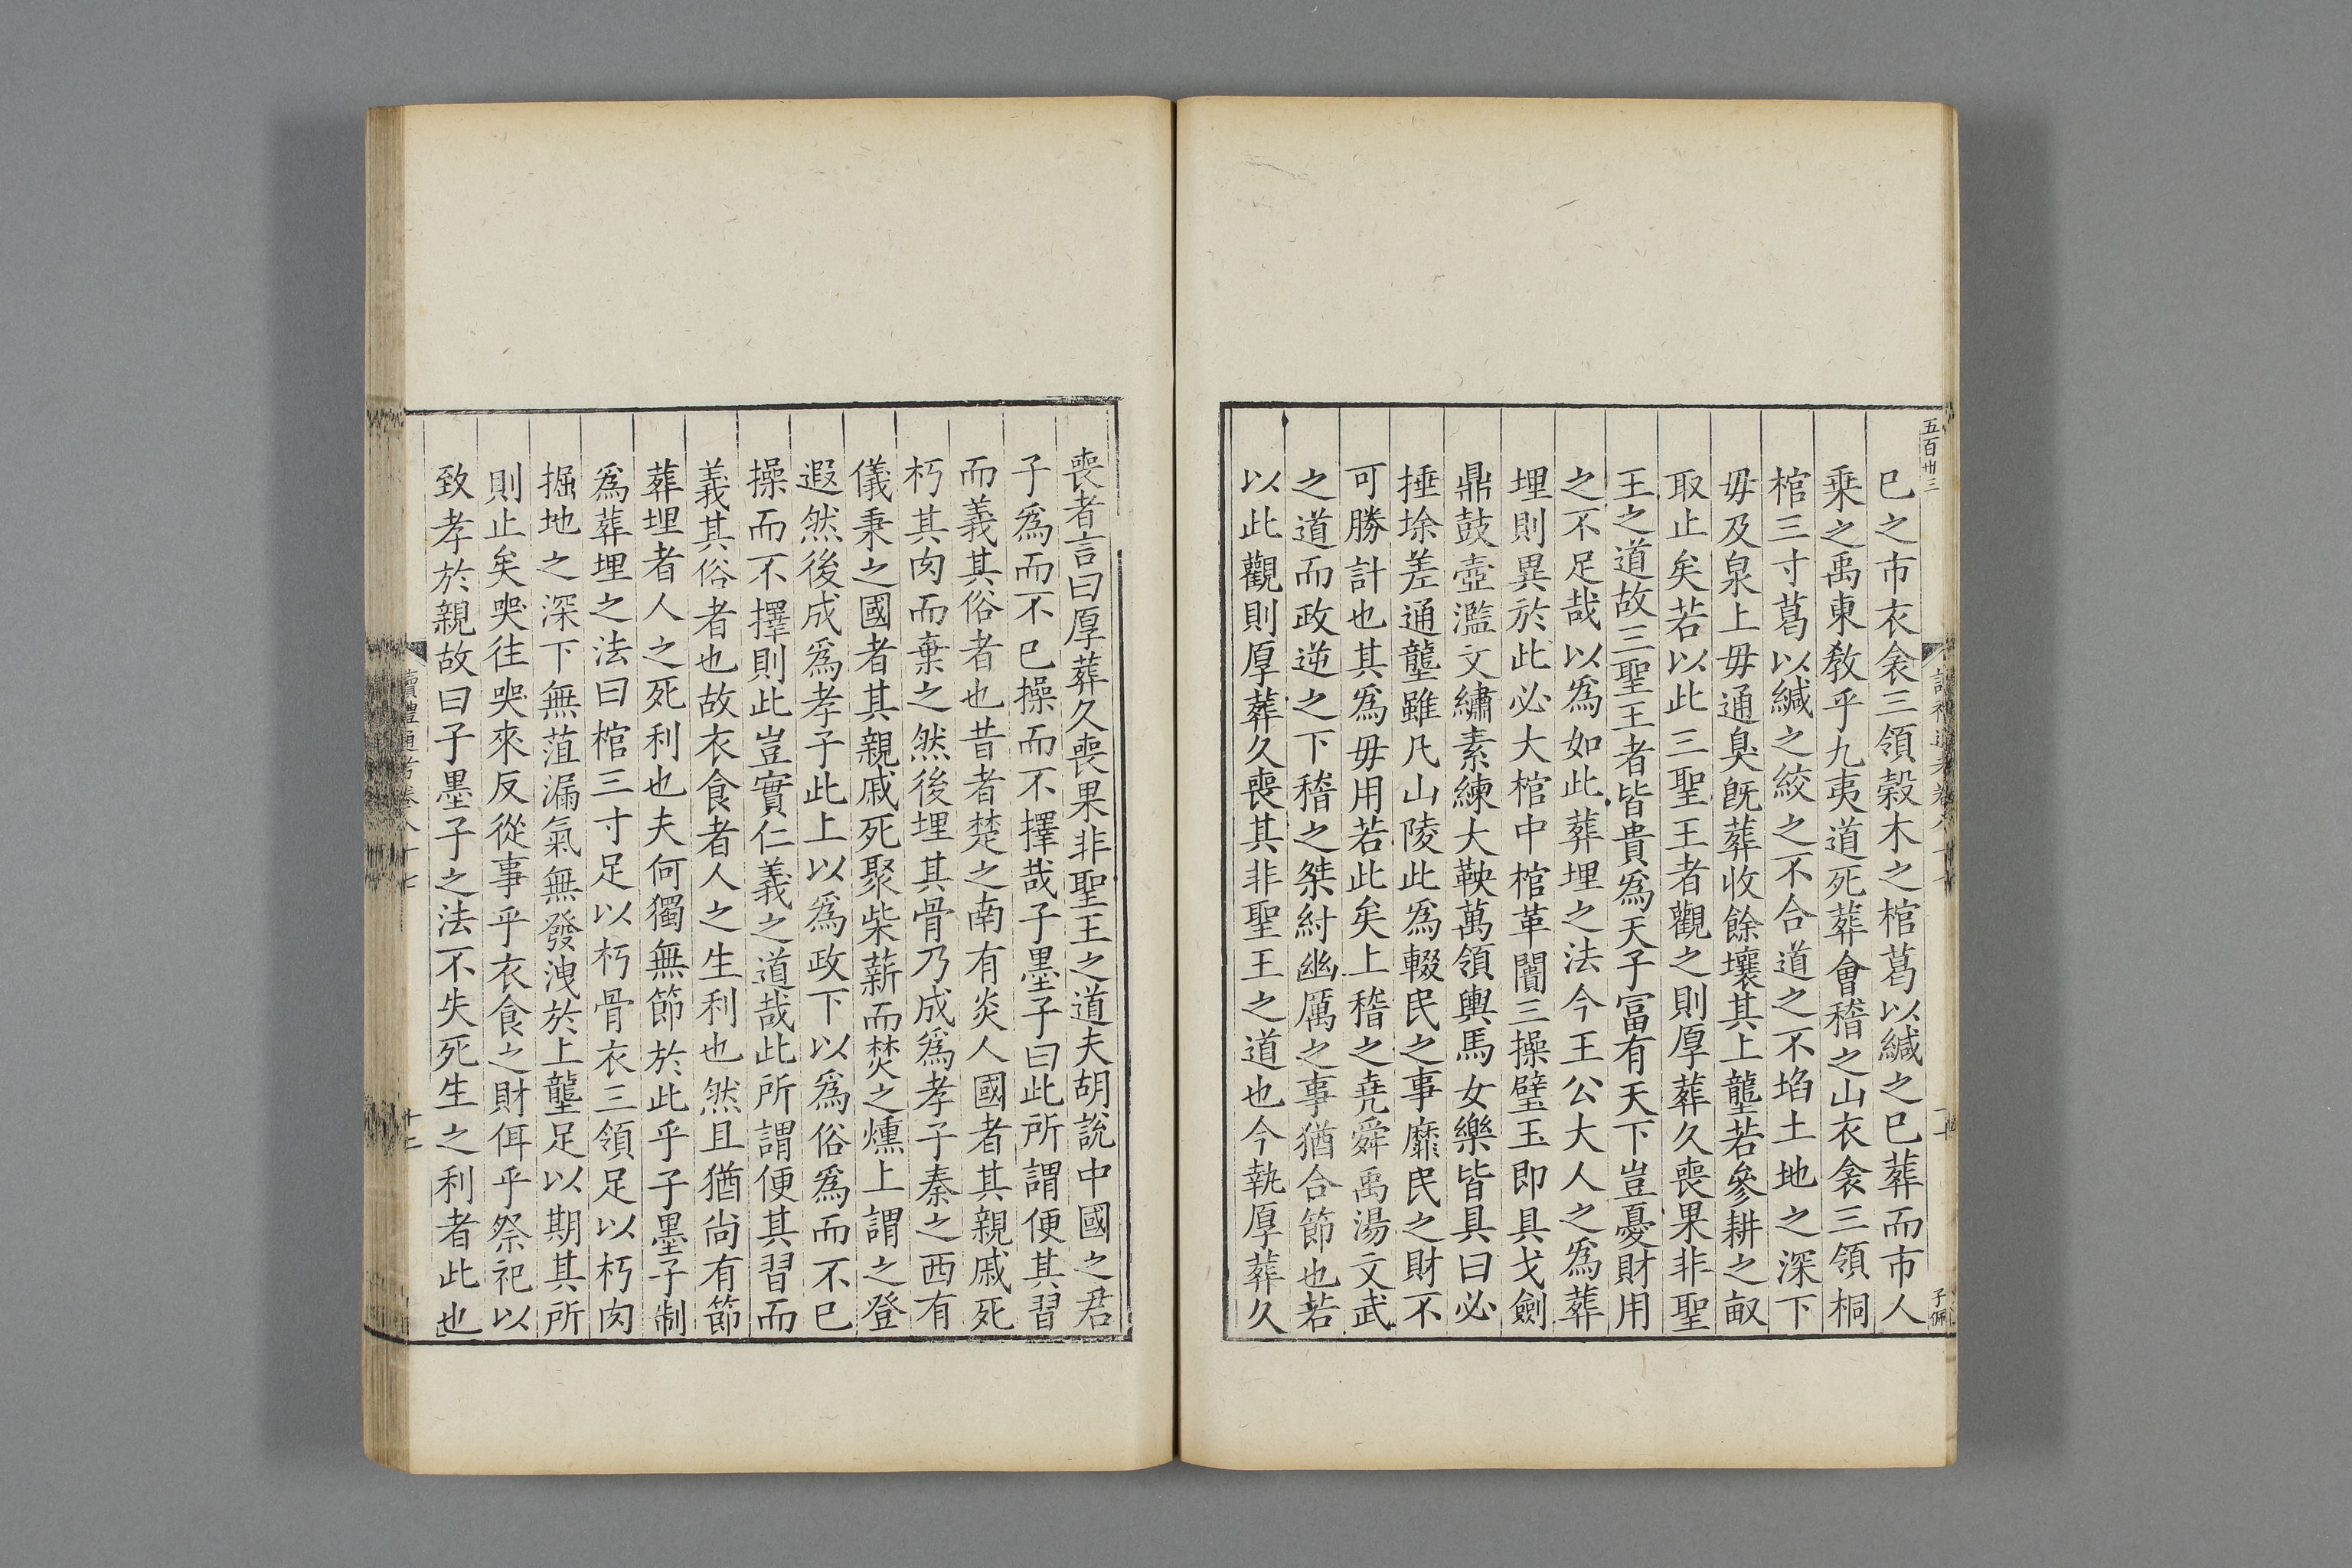 五百卅三
已之市衣衾三領榖木之棺葛以緘之已葬而市人
乗之禹東敎乎九夷道死葬會稽之山衣衾三領桐
棺三寸葛以緘之絞之不合道之不埳土地之深下
毋及泉上毋通臭旣葬收餘壤其上壟若參耕之畝
取止矣若以此三聖王者觀之則厚葬久喪果非聖
王之道故三聖王者皆貴爲天子富有天下豈憂財用
之不足哉以爲如此葬埋之法今王公大人之爲葬
埋則異於此必大棺中棺革闠三操璧玉即具戈劍
鼎鼓壺濫文繡素練大鞅萬領輿馬女樂皆具曰必
捶垛差通壟雖凡山陵此爲輟民之事靡民之財不
可勝計也其爲毋用若此矣上稽之堯舜禹湯文武
之道而政逆之下稽之桀紂幽厲之事猶合節也若
以此觀則厚葬久喪其非聖王之道也今執厚葬久
子佩
喪者言曰厚葬久喪果非聖王之道夫胡說中國之君
子爲而不已操而不擇哉子墨子曰此所謂便其習
而義其俗者也昔者楚之南有炎人國者其親戚死
朽其肉而棄之然後埋其骨乃成爲孝子秦之西有
儀秉之國者其親戚死聚柴薪而焚之燻上謂之登
遐然後成爲孝子此上以爲政下以爲俗爲而不已
操而不擇則此豈實仁義之道哉此所謂便其習而
義其俗者也故衣食者人之生利也然且猶尙有節
葬埋者人之死利也夫何獨無節於此乎子墨子制
爲葬埋之法曰棺三寸足以朽骨衣三領足以朽肉
掘地之深下無菹漏氣無發洩於上壟足以期其所
則止矣哭往哭來反從事乎衣食之財佴乎祭祀以
致孝於親故曰子墨子之法不失死生之利者此也
讀禮通考卷八十七
十二